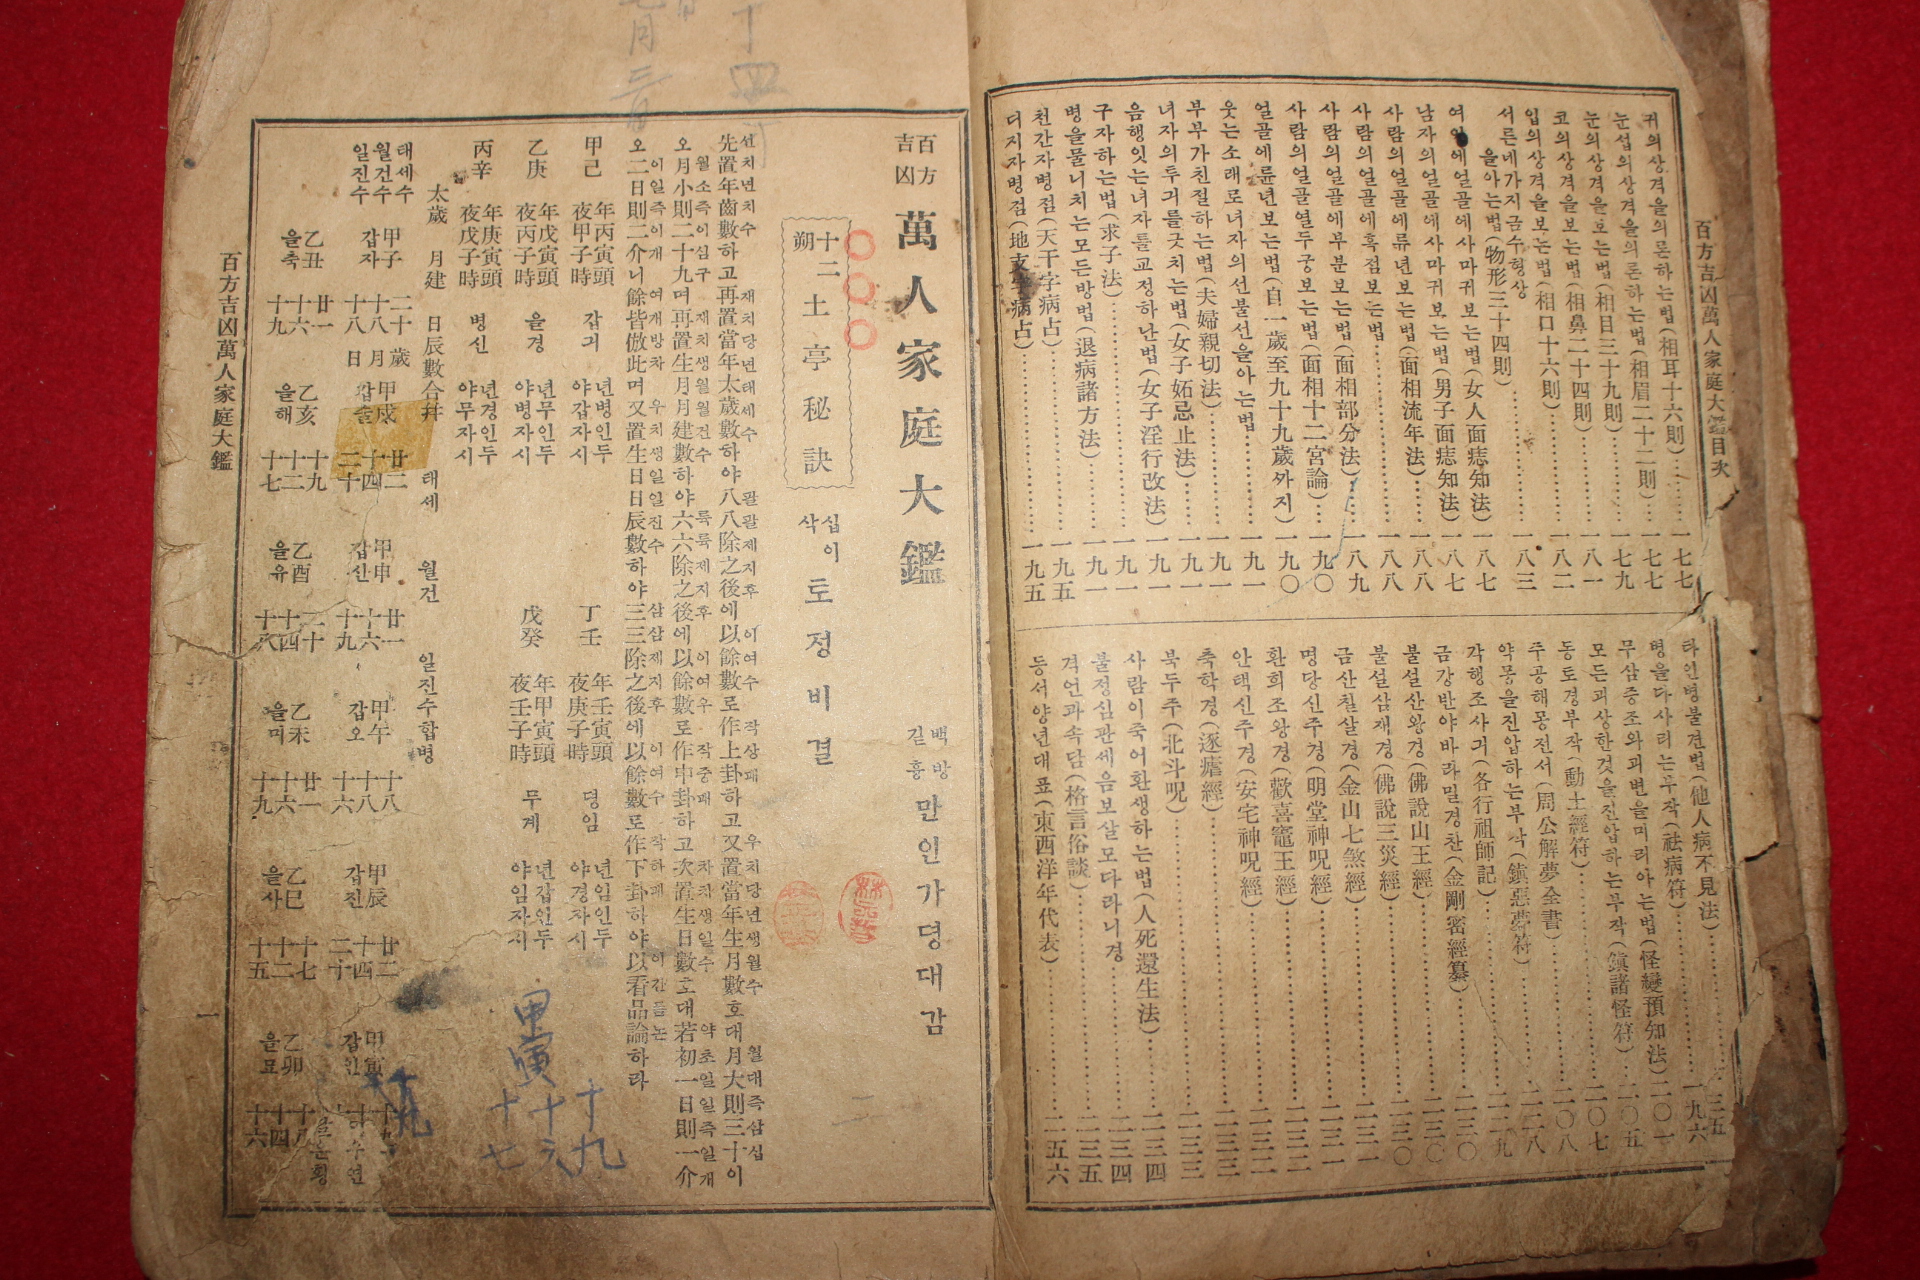 百方吉凶萬人家庭大鑑目次
귀의상격을의론하는법(相耳十六則)…一七七
눈섭의상격을의론하는법(相眉二十二則)…一七七
눈의상격을보는법(相目三十九則)…一七九
코의상격을보는법(相鼻二十四則)…一八一
입의상격을보는법(相口十六則)…一八二
서른네가지금수형상
을아는법(物形三十四則)…一八三
녀인에얼골에사마귀보는법(女人面痣知法)…一八七
남자의얼골에사마귀보는법(男子面痣知法)…一八七
사람의얼골에류년보는법(面相流年法)…一八八
사람의얼골에흑점보는법…一八八
사람의얼골에부분보는법(面相部分法)…一八九
사람의얼골열두궁보는법(面相十二宮論)…一九〇
얼골에륜년보는법(自一歲至九十九歲까지)…一九〇
웃는소래로녀자의선불선을아는법…一九一
부부가친절하는법(夫婦親切法)…一九一
녀자의투긔를굿치는법(女子妬忌止法)…一九一
음행잇는녀자를교정하난법(女子淫行改法)…一九一
구자하는법(求子法)…一九一
병을물니치는모든방법(退病諸方法)…一九一
천간자병점(天干字病占)…一九五
디지자병점(地支字病占)…一九五
타인병불견법(他人病不見法)…
병을다사리는부작(祛病符)…一九六
무삼증조와괴변을미리아는법(怪變預知法)…二〇一
모든괴상한것을진압하는부작(鎭諸怪符)…二〇五
동토경부작(動土經符)…二〇七
주공해몽전서(周公解夢全書)…二〇八
약몽을진압하는부작(鎭惡夢符)…二二八
각행조사긔(各行祖師記)…二二九
금강반야바라밀경찬(金剛密經纂)…二三〇
불설산왕경(佛說山王經)…二三〇
불설삼재경(佛說三災經)…二三〇
금산칠살경(金山七煞經)…二三一
명당신주경(明堂神呪經)…二三一
환희조왕경(歡喜竈王經)…二三二
안택신주경(安宅神呪經)…二三二
축학경(逐瘧經)…二三三
북두주(北斗呪)…二三三
사람이죽어환생하는법(人死還生法)…二三四
불정심관세음보살모다라니경…二三四
격언과속담(格言俗談)…二三五
동서양년대표(東西洋年代表)…二五六
百方吉凶 萬人家庭大鑑
백방길흉 만인가뎡대감
十二朔 土亭秘訣
십이삭 토정비결
선치년치수 재치당년태세수 팔팔제지후 이여수 작상괘 우치당년생월수 월대즉삼십
先置年齒數하고再置當年太歲數하야八八除之後에以餘數로作上卦하고又置當年生月數호대月大則三十이
월소즉이십구 재치생월월건수 륙륙제지후 이여수 작중괘 차치생일수 약초일일즉일개
오月小則二十九며再置生月月建數하야六六除之後에以餘數로作中卦하고次置生日數호대若初一日則一介
이일즉이개 여개방차 우치생일일진수 삼삼제지후 이여수 작하괘 이간품논
오二日則二介니餘皆倣此며又置生日日辰數하야三三除之後에以餘數로作下卦하야以看品論하라
甲己 年丙寅頭 夜甲子時 갑긔 년병인두 야갑자시 丁壬 年壬寅頭 夜庚子時 뎡임 년임인두 야경자시
乙庚 年戊寅頭 夜丙子時 을경 년무인두 야병자시 戊癸 年甲寅頭 夜壬子時 무계 년갑인두 야임자시
丙辛 年庚寅頭 夜戊子時 병신 년경인두 야무자시
太歲 月建 日辰數合幷 태세 월건 일진수합병
태세수 월건수 일진수
甲子 갑자 二十歲 十八月 十八日 甲戌 갑술 廿二 十四 二十 甲申 갑신 廿一 十六 十九 甲午 갑오 十八 十八 十六 甲辰 갑진 廿二 十四 二十 甲寅 갑인
乙丑 을축 廿一 十六 十九 乙亥 을해 十九 十二 十七 乙酉 을유 二十 十四 十八 乙未 을미 廿一 十六 十九 乙巳 을사 十七 十二 十五 乙卯 을묘 十八 十四 十六
甲寅
十九
十六
十七
百方吉凶萬人家庭大鑑
一